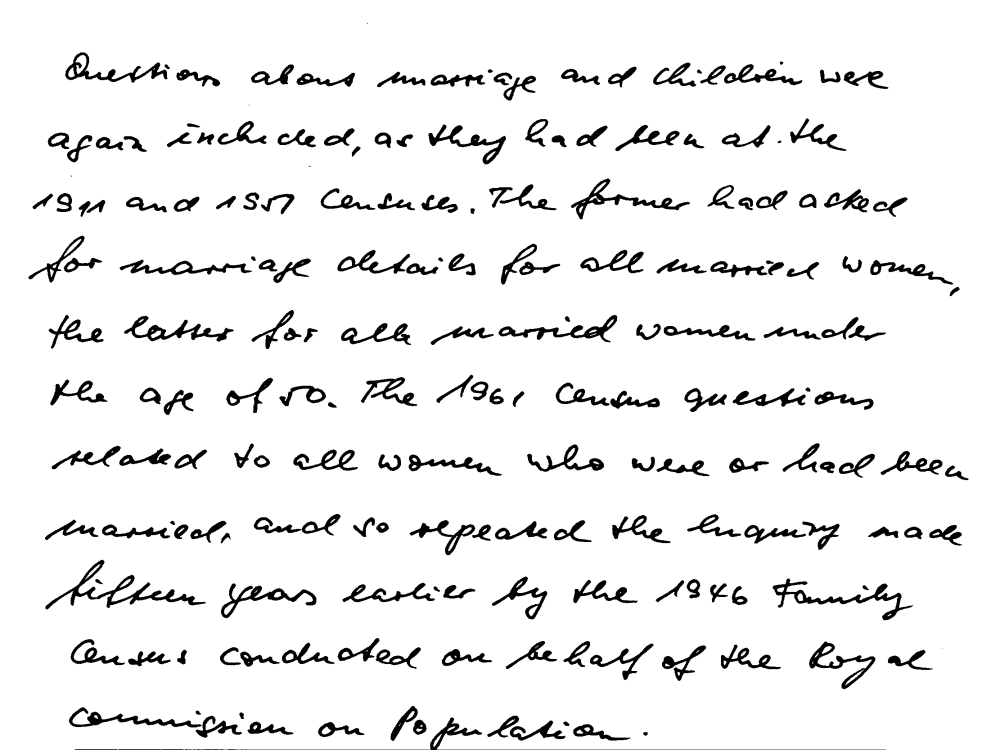 Questions about marriage and children were
again included, as they had been at the
1911 and 1951 Censuses. The former had asked
for marriage details for all married women,
the latter for all married women under
the age of 50. The 1961 Census questions
related to all women who were or had been
married, and so repeated the Inquiry made
fifteen years earlier by the 1946 Family
Census conducted on behalf of the Royal
Commission on Population.